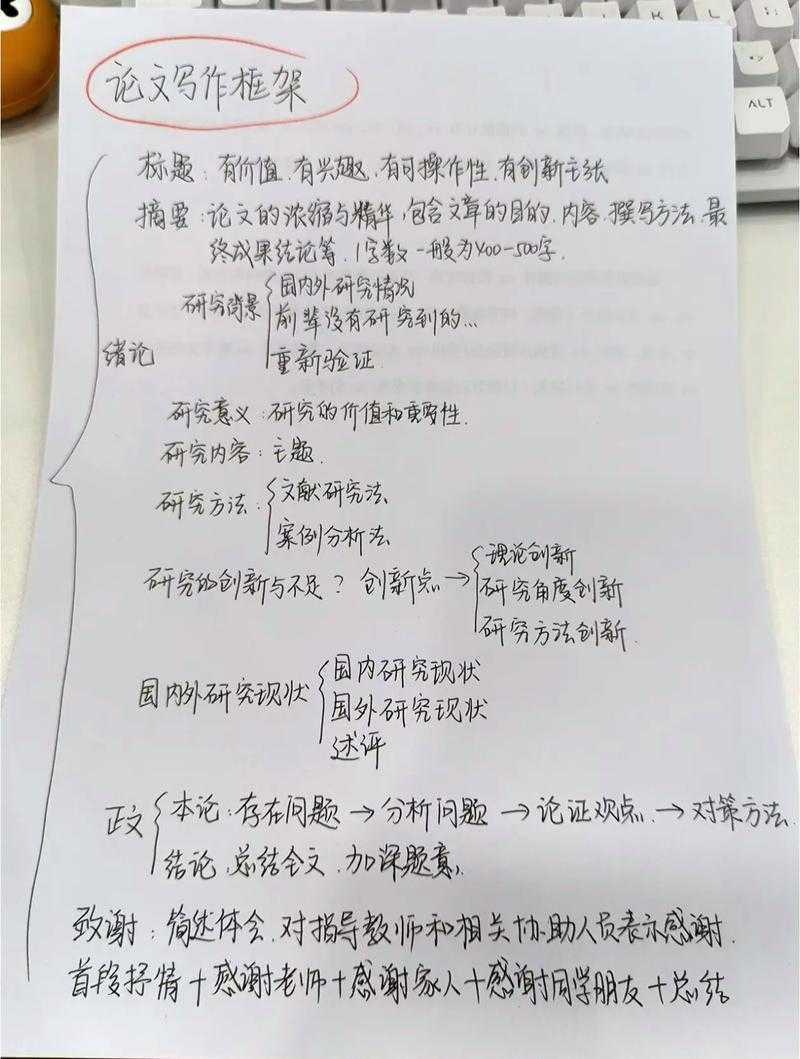 ALT
论文写作框架
标题：有价值、有兴趣、有可操作性、有创新主张
摘要：论文的浓缩与精华，包含文章的目的、内容、撰写方法、最
终成果结论等，字数一般为400-500字.
绪论
研究背景
国内外研究情况
前辈没有研究到的...
重新验证.
研究意义：研究的价值和重要性.
研究内容：主题.
研究方法：
文献研究法
案例分析法
研究的创新与不足？ 创新点→
理论创新
研究角度创新
研究方法创新.
国内外研究现状
国内研究现状
国外研究现状
述评
正文
本论：存在问题→分析问题→论证观点→对策方法.
结论、总结全文、加深题意.
致谢：简述体会、对指导教师和相关协助人员表示感谢.
首段抒情+感谢老师+感谢家人+感谢同学朋友+总结